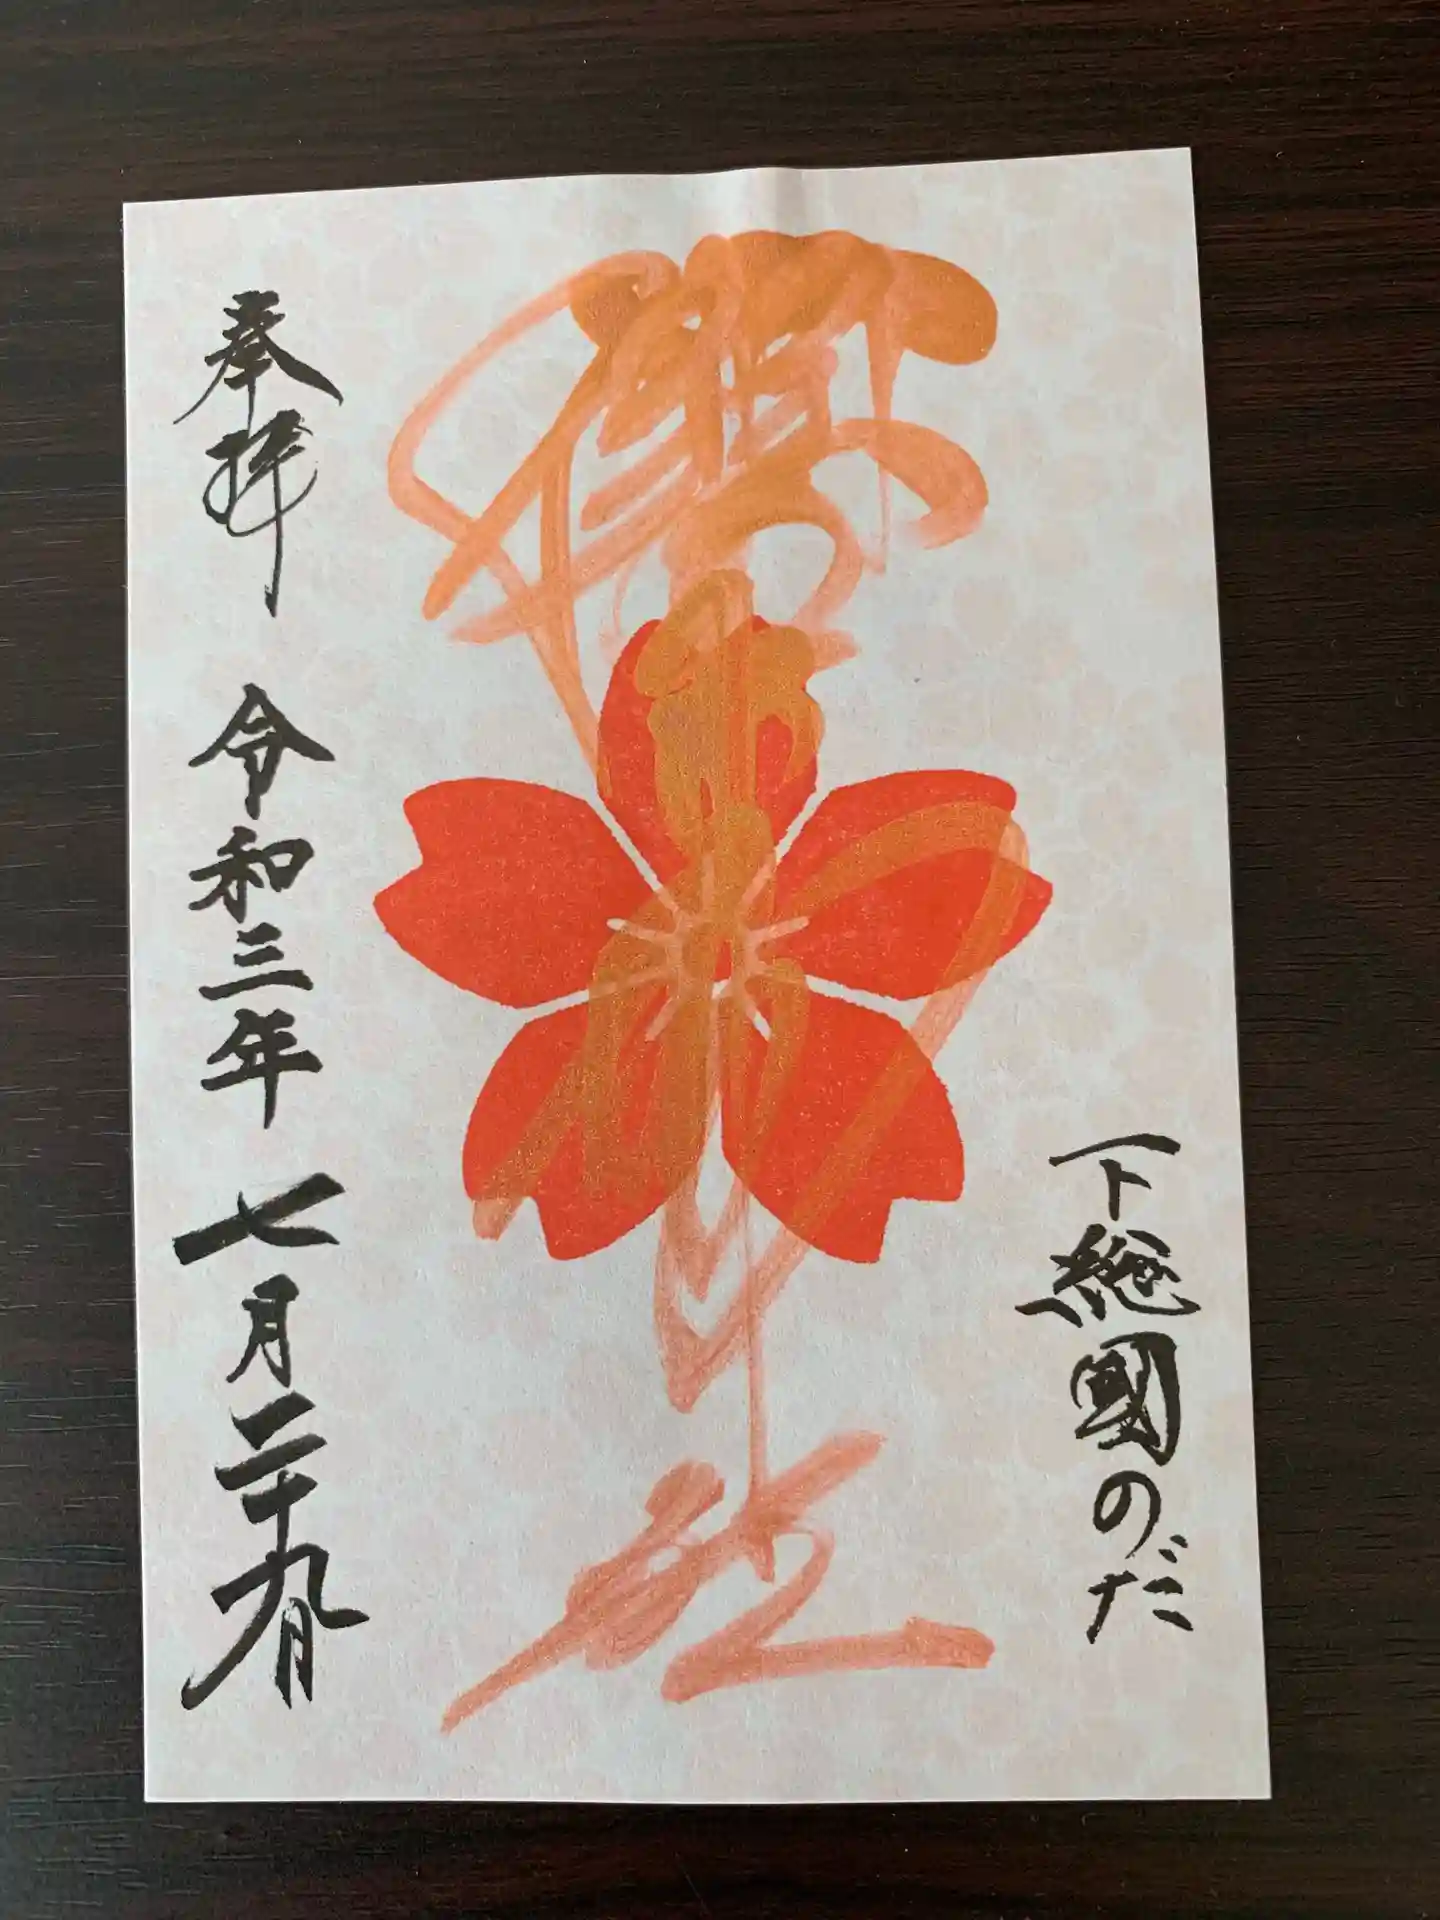 下総國のだ
櫻木神社
奉拝 令和三年七月二十九日